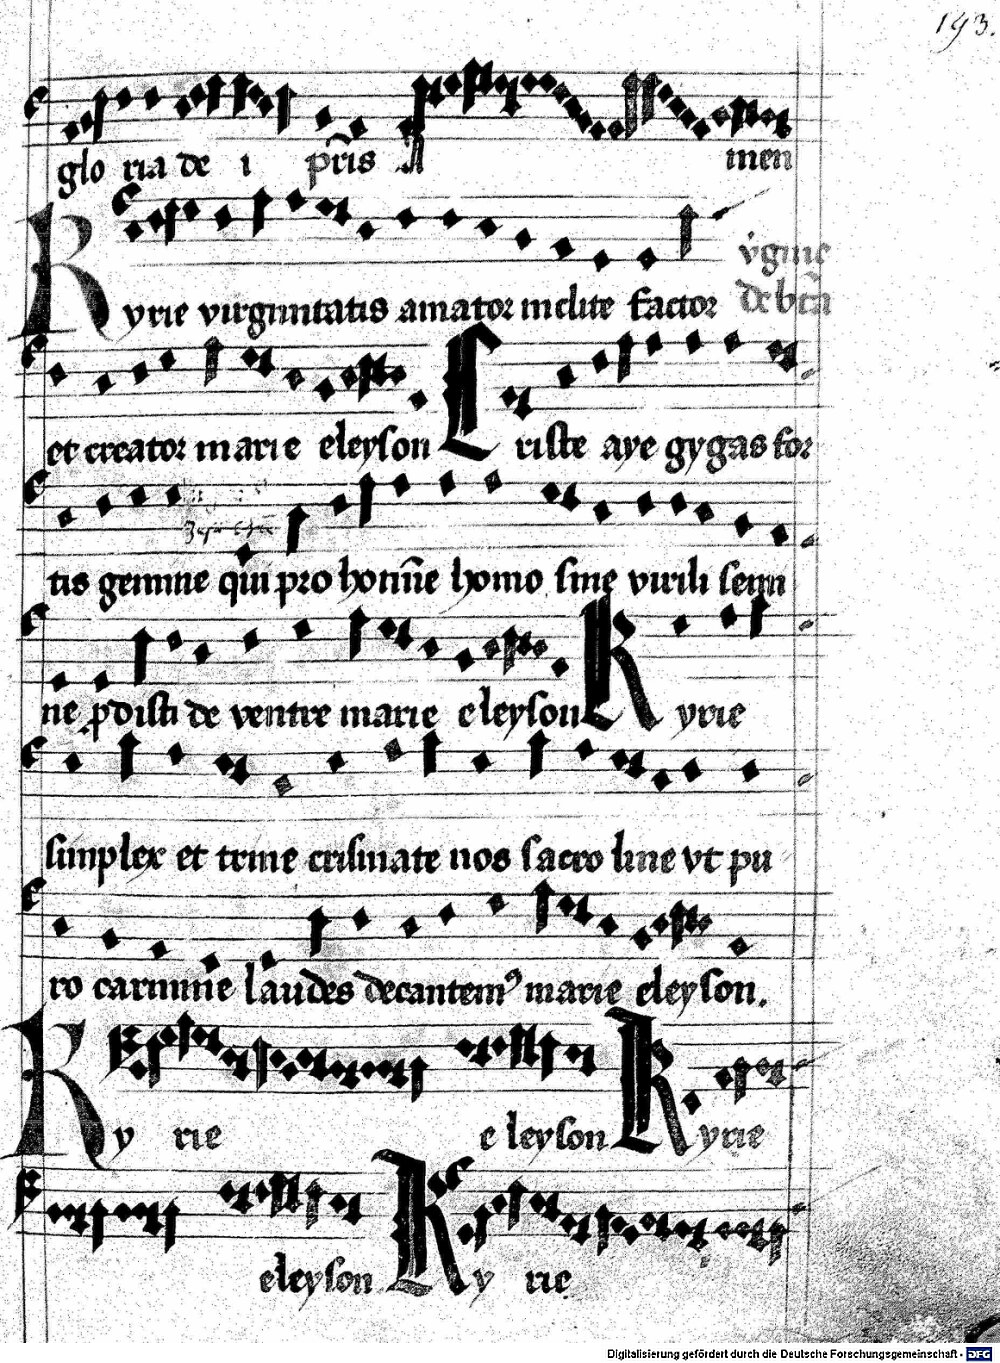 193.
glo ria de i pris A men
v̓gnis
Kyrie virginitatis amator inclite factor de btā
et creator marie eleyson Criste aye gygas for
tis gemine qui pro homīe homo sine virili semi
ne ꝓdisti de ventre marie eleyson Kyrie
simplex et trine crismate nos sacro line vt pu
ro carmine laudes decantemꝰ marie eleyson.
Ky rie eleyson Kyrie
eleyson Ky rie
Digitalisierung gefördert durch die Deutsche Forschungsgemeinschaft - DFG